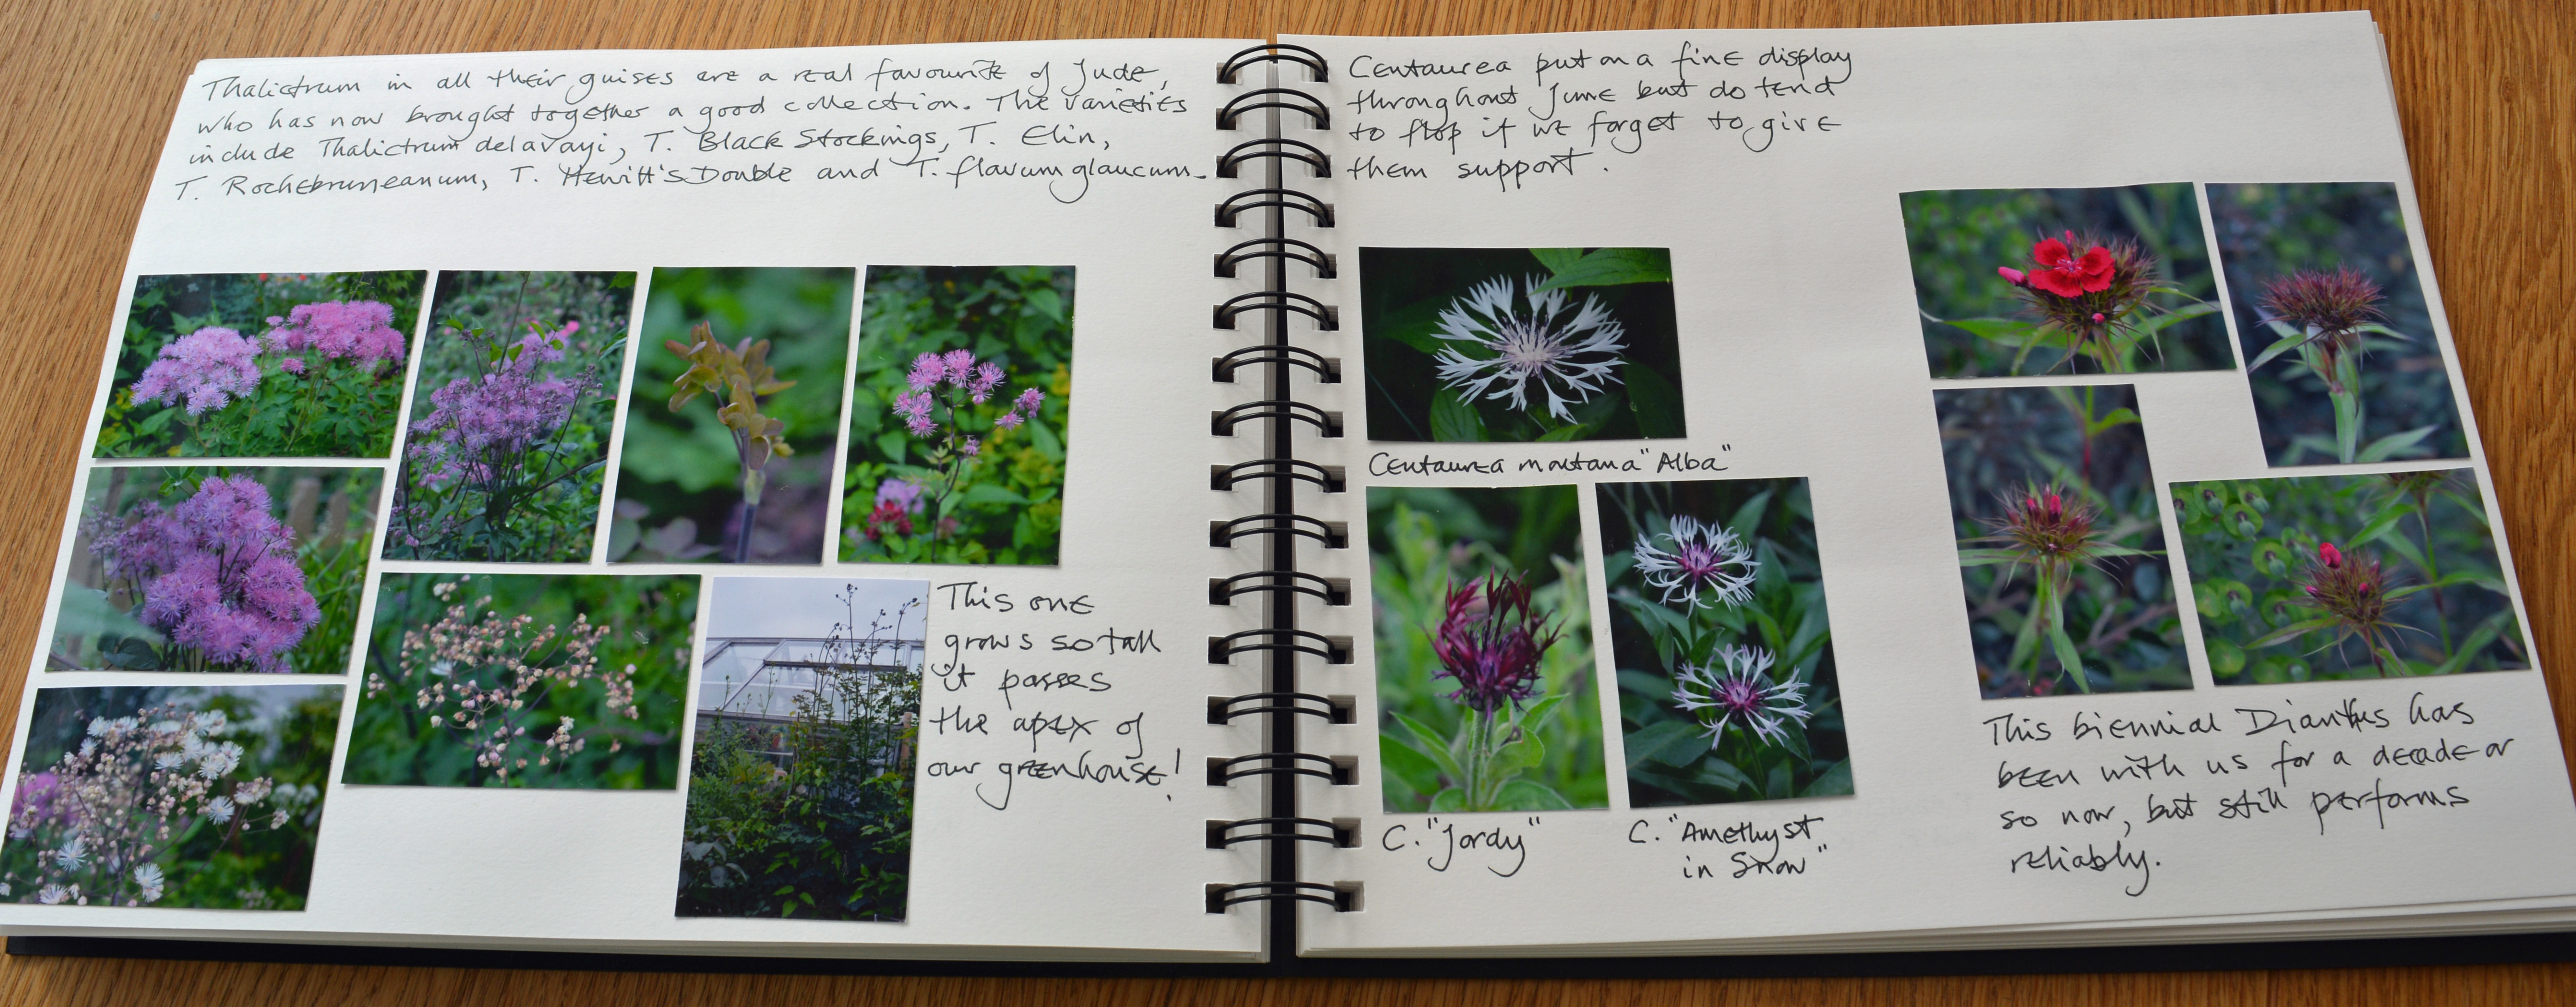 Thalictrum in all their guises are a real favourite of Jude,
who has now brought together a good collection. The varieties
include Thalictrum delavayi, T. Black Stockings, T. Elin,
T. Rochebruneanum, T. Hewitt's Double and T. flavum glaucum.
This one
grows so tall
it passes
the apex of
our greenhouse!
Centaurea put on a fine display
throughout June but do tend
to flop if we forget to give
them support.
Centaurea montana "Alba"
C. "Jordy"
C. "Amethyst
in Snow"
This biennial Dianthus has
been with us for a decade or
so now, but still performs
reliably.